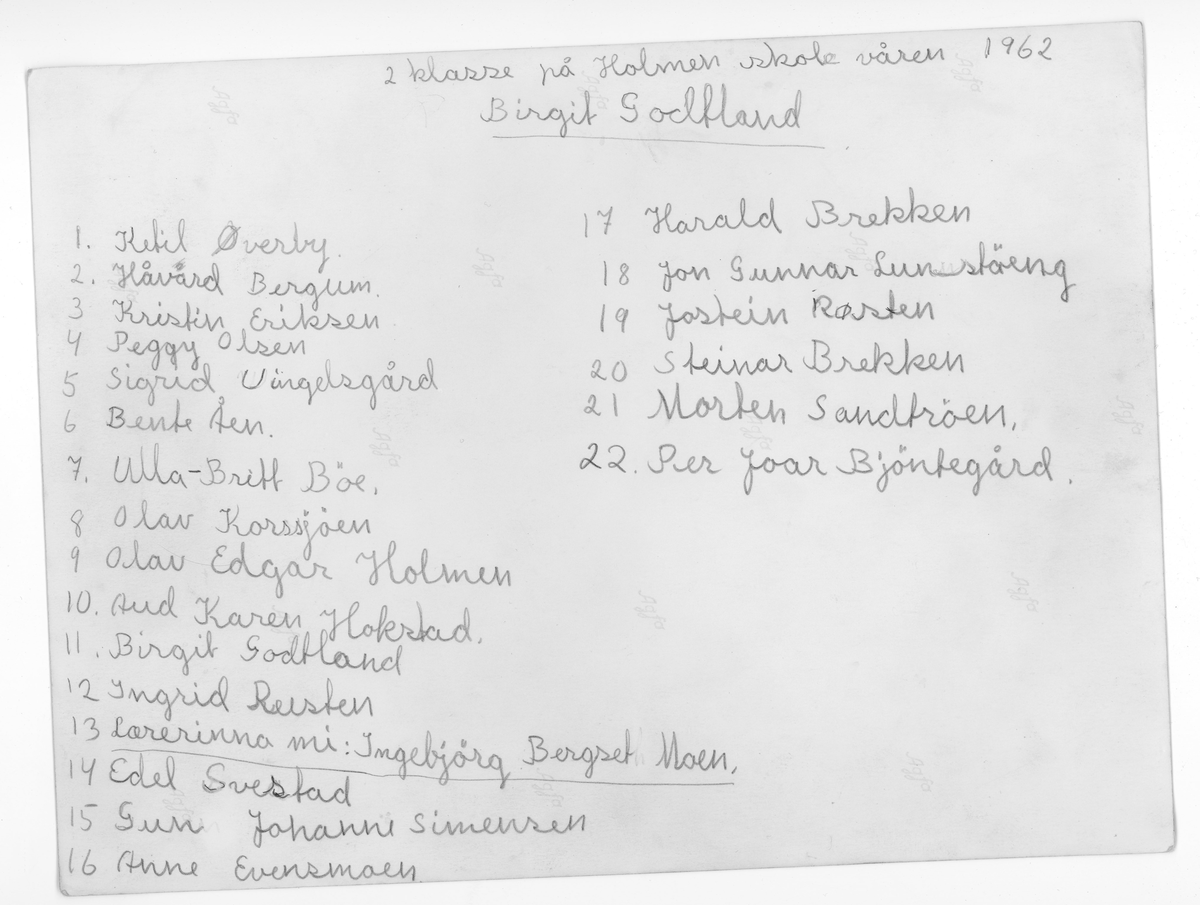 2 klasse på Holmen skole våren 1962
Birgit Godtland
1. Ketil Øverby.
2. Håvård Bergum.
3 Kristin Eriksen
4 Peggy Olsen
5 Sigrid Vingelsgård
6 Bente Åen.
7. Ulla-Britt Böe.
8 Olav Korssjöen
9 Olav Edgar Holmen
10. Aud Karen Hokstad.
11. Birgit Godtland
12 Ingrid Rusten
13 Lærerinna mi: Ingebjörg Bergset Moen.
14 Edel Svestad
15 Gun Johanne Simensen
16 Anne Evensmoen
17 Harald Brekken
18 Jon Gunnar
19 Jostein Røsten
20 Steinar Brekken
21 Morten Sandtröen.
22. Per Joar Bjöntegård.